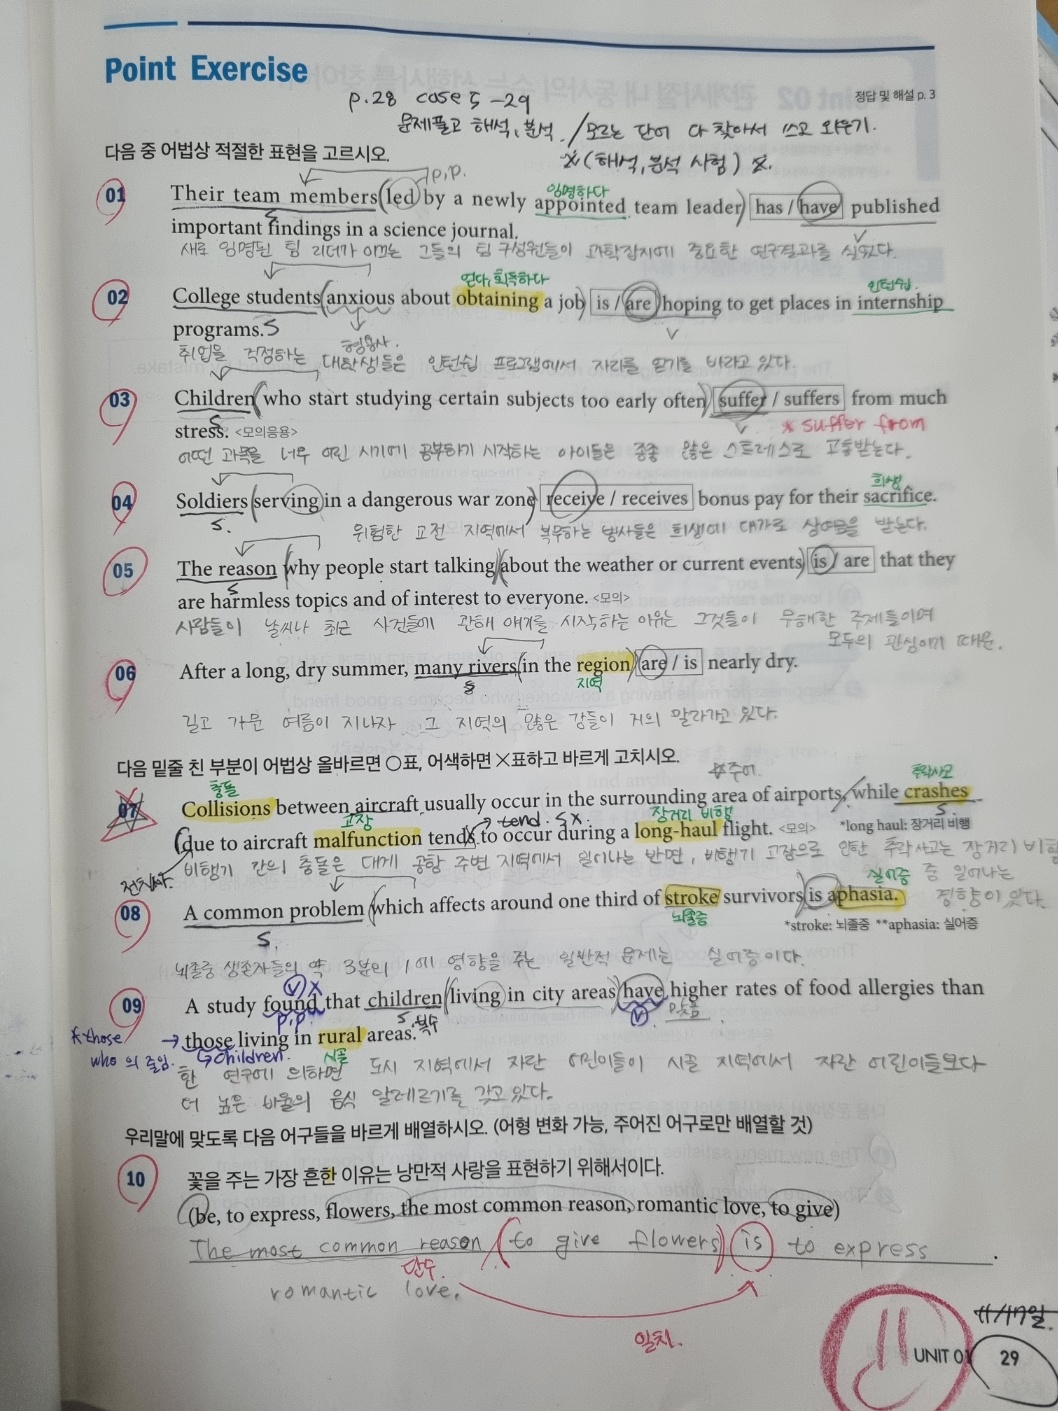 Point Exercise
p.28 case 5 -29
정답 및 해설 p. 3
문제풀고 해석, 분석. / 모르는 단어 다 찾아서 쓰고 외우기.
다음 중 어법상 적절한 표현을 고르시오.
※(해석, 분석 시험)※.
p.p.
임명하다
01 Their team members (led by a newly appointed team leader) has / have published
S
V
important findings in a science journal.
새로 임명된 팀 리더가 이끄는 그들의 팀 구성원들이 과학잡지에 중요한 연구결과를 실었다.
얻다, 획득하다
인턴쉽
02 College students (anxious about obtaining a job) is / are hoping to get places in internship
programs. S
형용사.
V
취업을 걱정하는 대학생들은 인턴쉽 프로그램에서 자리를 얻기를 바라고 있다.
03 Children (who start studying certain subjects too early often) suffer / suffers from much
S
V
* suffer from
stress. <모의응용>
어떤 과목을 너무 어린 시기에 공부하기 시작하는 아이들은 종종 많은 스트레스로 고통받는다.
희생
04 Soldiers (serving in a dangerous war zone) receive / receives bonus pay for their sacrifice.
S.
위험한 교전 지역에서 복무하는 병사들은 희생에 대가로 상여금을 받는다.
05 The reason (why people start talking (about the weather or current events) is / are that they
S
are harmless topics and of interest to everyone. <모의>
사람들이 날씨나 최근 사건들에 관해 얘기를 시작하는 이유는 그것들이 무해한 주제들이며
모두의 관심이기 때문.
06 After a long, dry summer, many rivers (in the region) are / is nearly dry.
S
지역
길고 가문 여름이 지나자 그 지역의 많은 강들이 거의 말라가고 있다.
다음 밑줄 친 부분이 어법상 올바르면 ○표, 어색하면 ×표하고 바르게 고치시오.
☆주어.
충돌
추락사고
07 Collisions between aircraft usually occur in the surrounding area of airports, while crashes
S
고장
→ tend. SX.
장거리 비행
(due to aircraft malfunction tends to occur during a long-haul flight. <모의> *long haul: 장거리 비행
전치사.
비행기 간의 충돌은 대게 공항 주변 지역에서 일어나는 반면, 비행기 고장으로 인한 추락사고는 장거리 비행
중 일어나는
경향이 있다.
실어증
08 A common problem (which affects around one third of stroke survivors) is aphasia.
S.
뇌졸중
*stroke: 뇌졸중 **aphasia: 실어증
뇌졸중 생존자들의 약 3분의 1에 영향을 주는 일반적 문제는 실어증이다.
V X
09 A study found that children (living in city areas) have higher rates of food allergies than
p.p.
S. 복수
V
*those
→ those living in rural areas.
who 의 줄임.
↳ children.
시골
한 연구에 의하면 도시 지역에서 자란 어린이들이 시골 지역에서 자란 어린이들보다
더 높은 비율의 음식 알레르기를 갖고 있다.
우리말에 맞도록 다음 어구들을 바르게 배열하시오. (어형 변화 가능, 주어진 어구로만 배열할 것)
10 꽃을 주는 가장 흔한 이유는 낭만적 사랑을 표현하기 위해서이다.
(be, to express, flowers, the most common reason, romantic love, to give)
The most common reason (to give flowers) is to express .
단수
romantic love.
일치.
11/17일.
UNIT 01 29